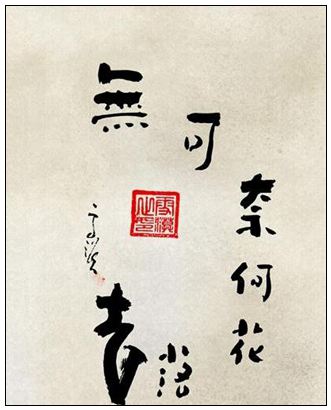 無
可
奈何花
落
去